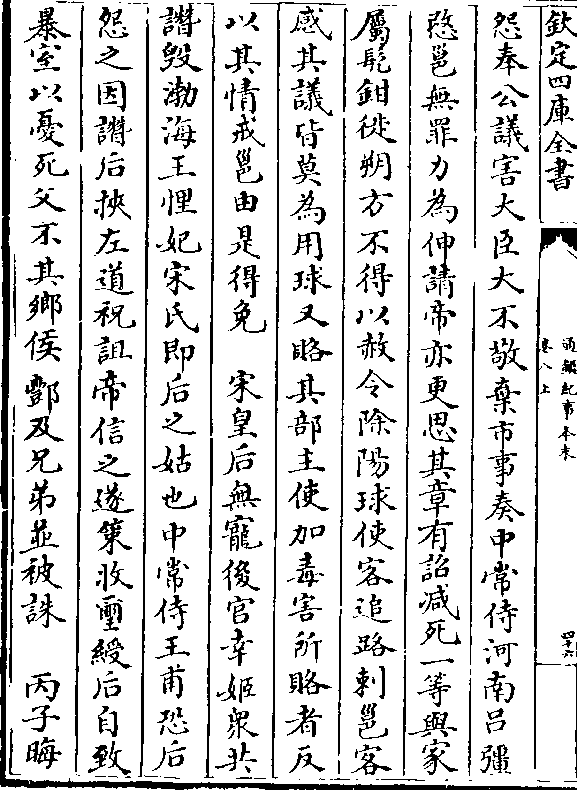 欽定四庫全書
通鑑紀事本末
卷八上
四十六
怨奉公議害大臣大不敬棄市事奏中常侍河南吕彊
愍邕無罪力為伸請帝亦更思其章有詔减死一等與家
屬髡鉗徙朔方不得以赦令除陽球使客追路刺邕客
感其議皆莫為用球又賂其部主使加毒害所賂者反
以其情戒邕由是得免　宋皇后無寵後宫幸姬衆共
譖毁渤海王悝妃宋氏即后之姑也中常侍王甫恐后
怨之因譖后挾左道祝詛帝信之遂策收璽綬后自致
暴室以憂死父不其鄉侯酆及兄弟並被誅　丙子晦